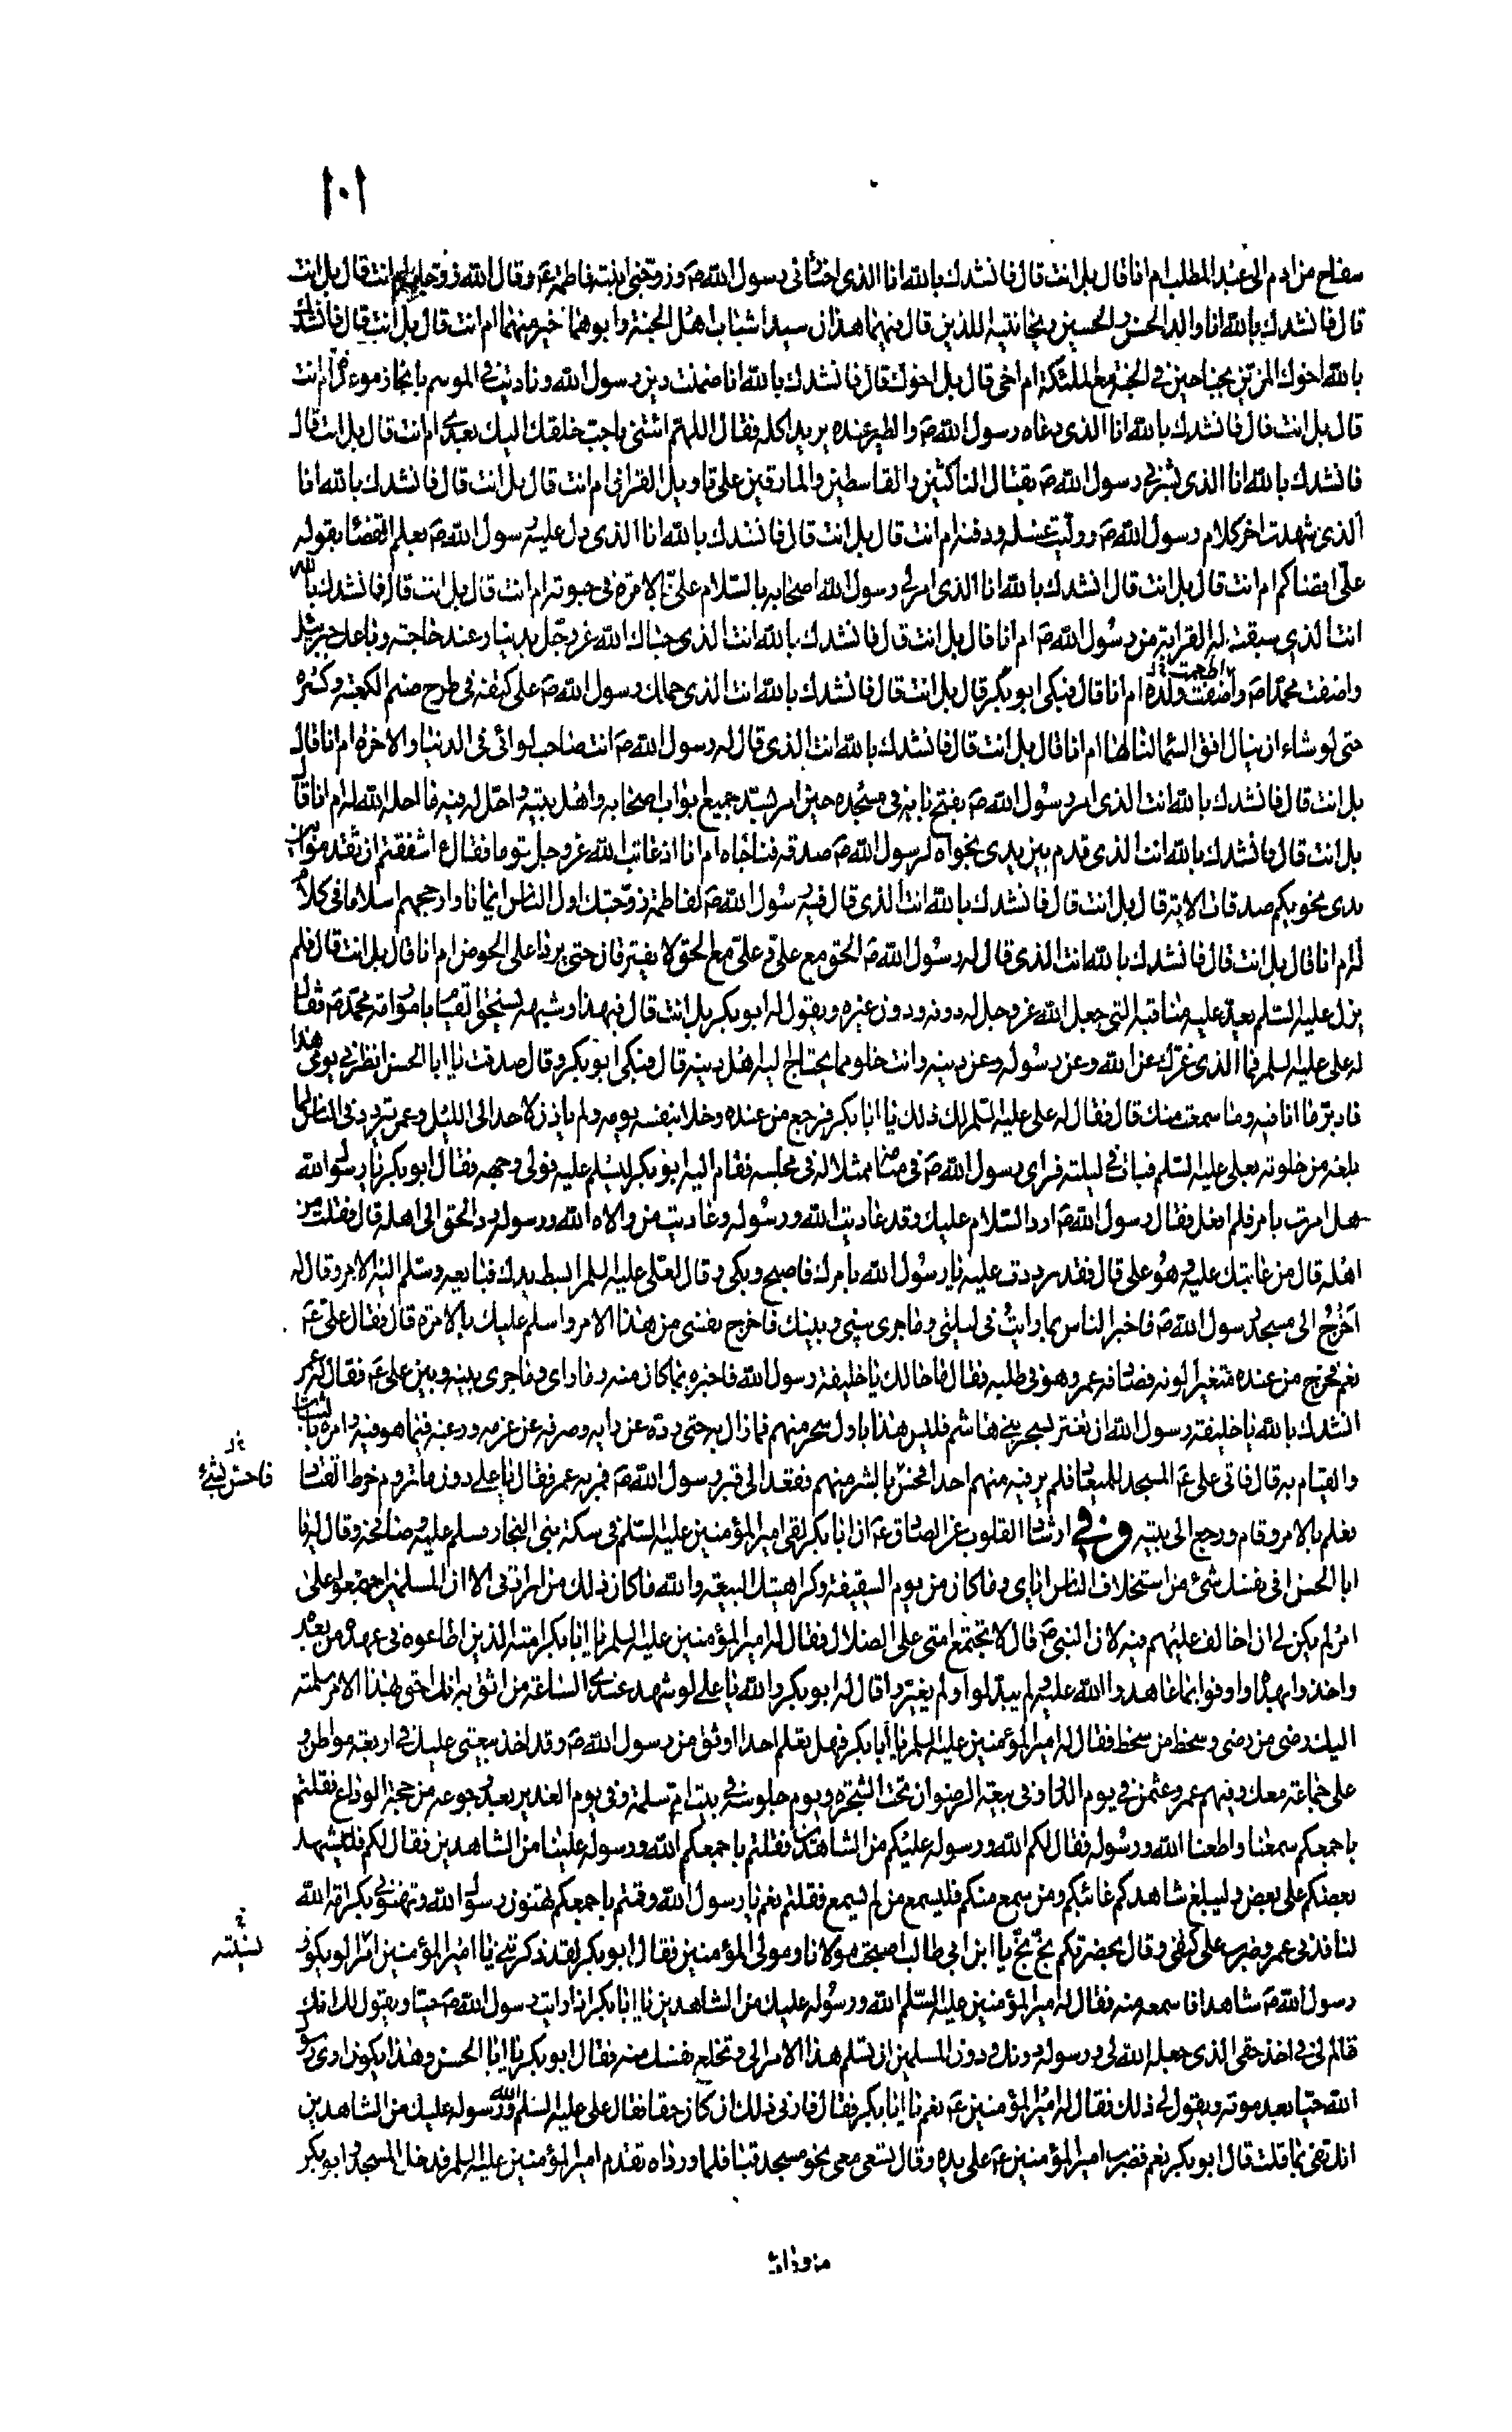 ١٠١
سفاح من ادم الى عبد المطلب ام انا قال بل انت قال فانشدك بالله انا الذى اختارنى رسول الله ص وزوجنى ابنته فاطمة ع وقال الله زوجك ام انت قال بل انت
قال فانشدك بالله انا والد الحسن والحسين ريحانتيه اللذين قال فيهما هذان سيدا شباب اهل الجنة وابوهما خير منهما ام انت قال بل انت قال فانشدك
بالله اخوك المزين بجناحين فى الجنة مع الملئكة ام اخى قال بل اخوك قال فانشدك بالله انا ضمنت دين رسول الله وناديت فى الموسم بانجاز موعده ام انت
قال بل انت قال فانشدك بالله انا الذى دعاه رسول الله ص والطير عنده يريد اكله فقال اللهم ائتنى باحب خلقك اليك بعدى ام انت قال بل انت قال
فانشدك بالله انا الذى بشرنى رسول الله ص بقتال الناكثين والقاسطين والمارقين على تاويل القران ام انت قال بل انت قال فانشدك بالله انا
الذى شهدت اخر كلام رسول الله ص ووليت غسله ودفنه ام انت قال بل انت قال فانشدك بالله انا الذى دل عليه رسول الله ص بعلم القضاء بقوله
على اقضاكم ام انت قال بل انت قال انشدك بالله انا الذى امر لى رسول الله اصحابه بالسلام على بالامرة فى حيوته ام انت قال بل انت قال فانشدك بالله
انت الذى سبقت له القرابة من رسول الله ص ام انا قال بل انت قال فانشدك بالله انت الذى حباك الله عز وجل بدينار عند حاجته وباعك جبرئيل
واضفت محمدا ص واضفت ولده ام انا قال فبكى ابو بكر قال بل انت قال فانشدك بالله انت الذى حملك رسول الله ص على كتفه فى طرح صنم الكعبة وكسره
واطعمت خ ل
حتى لو شاء ان ينال افق السماء لنالها ام انا قال بل انت قال فانشدك بالله انت الذى قال له رسول الله ص انت صاحب لوائى فى الدنيا والاخرة ام انا قال
بل انت قال فانشدك بالله انت الذى امر رسول الله ص بفتح بابه فى مسجده حين امر بسد جميع ابواب اصحابه واهل بيته واحل له فيه ما احل الله له ام انا قال
بل انت قال فانشدك بالله انت الذى قدم بين يدى نجواه لرسول الله ص صدقة فناجاه ام انا اذ عاتب الله عز وجل قوما فقال ءاشفقتم ان تقدموا بين
يدى نجويكم صدقات الاية قال بل انت قال فانشدك بالله انت الذى قال فيه رسول الله ص لفاطمة زوجتك اول الناس ايمانا وارجحهم اسلاما فى كلام
له ام انا قال بل انت قال فانشدك بالله انت الذى قال له رسول الله ص الحق مع على وعلى مع الحق لا يفترقان حتى يردا على الحوض ام انا قال بل انت قال فلم
يزل عليه السلم يعد عليه مناقبه التى جعل الله عز وجل له دونه ودون غيره ويقول له ابو بكر بل انت قال فبهذا وشبهه تستحق القيام بامور امة محمد ص فقال
له على عليه السلم فما الذى غرك عن الله وعن رسوله وعن دينه وانت خلو مما يحتاج اليه اهل دينه قال فبكى ابو بكر وقال صدقت يا ابا الحسن انظرنى يومى هذا
فادبر ما انا فيه وما سمعت منك قال فقال له على عليه السلم لك ذلك يا ابا بكر فرجع من عنده وخلا بنفسه يومه ولم ياذن لاحد الى الليل وعمر يتردد فى الناس لما
بلغه من خلوته بعلى عليه السلم فبات فى ليلته فراى رسول الله ص فى منامه ممثلا له فى مجلسه فقام اليه ابو بكر ليسلم عليه فولى وجهه فقال ابو بكر يا رسول الله
هل امرت بامر فلم افعل فقال رسول الله ص ارد السلام عليك وقد عاديت الله ورسوله وعاديت من والاه الله ورسوله رد الحق الى اهله قال فقلت من
اهله قال من عاتبك عليه وهو على قال فقد رددت عليه يا رسول الله بامرك فاصبح وبكى وقال لعلى عليه السلم ابسط يدك فبايعه وسلم اليه الامر وقال له
اخرج الى مسجد رسول الله ص فاخبر الناس بما رايت فى ليلتى وما جرى بينى وبينك فاخرج نفسى من هذا الامر واسلم عليك بالامرة قال فقال على ع
نعم فخرج من عنده متغيرا لونه فصادفه عمر وهو فى طلبه فقال ما حالك يا خليفة رسول الله فاخبره بما كان منه وما راى وما جرى بينه وبين على ع فقال له عمر
انشدك بالله يا خليفة رسول الله ان تغتر بسحر بنى هاشم فليس هذا باول سحر منهم فما زال به حتى رده عن رايه وصرفه عن عزمه ورغبه فيما هو فيه وامره بالثبات
والقيام به قال فاتى على ع المسجد للميعاد فلم ير فيه منهم احدا فحس بالشر منهم فقعد الى قبر رسول الله ص فمر به عمر فقال يا على دون ما تروم خرط القتاد
خ ل
فاحس بشئ
فعلم بالامر وقام ورجع الى بيته وفى ارشاد القلوب عن الصادق ع ان ابا بكر لقى امير المؤمنين عليه السلم فى سكة بنى النجار فسلم عليه وصافحه وقال له يا
ابا الحسن افى نفسك شئ من استخلاف الناس اياى وما كان من يوم السقيفة وكراهيتك البيعة والله ما كان ذلك من ارادتى الا ان المسلمين اجتمعوا على
امر لم يكن لى ان اخالف عليهم فيه لان النبى ص قال لا تجتمع امتى على الضلال فقال له امير المؤمنين عليه السلم يا ابا بكر امته الذين اطاعوه فى عهده من بعده
واخذوا بهداه واوفوا بما عاهدوا الله عليه ولم يبدلوا ولم يغيروا قال له ابو بكر والله يا على لو شهد عندى الساعة من اثق به انك احق بهذا الامر سلمته
اليك رضى من رضى وسخط من سخط فقال له امير المؤمنين عليه السلم يا ابا بكر فهل تعلم احدا اوثق من رسول الله ص وقد اخذ بيعتى عليك فى اربعة مواطن و
على جماعة معك وفيهم عمر وعثمن فى يوم الدار وفى بيعة الرضوان تحت الشجرة ويوم جلوسه فى بيت ام سلمة وفى يوم الغدير بعد رجوعه من حجة الوداع فقلتم
باجمعكم سمعنا واطعنا الله ورسوله فقال لكم الله ورسوله عليكم من الشاهدين فقلتم باجمعكم الله ورسوله علينا من الشاهدين فقال لكم فليشهد
بعضكم على بعض وليبلغ شاهدكم غائبكم ومن سمع منكم فليسمع من لم يسمع فقلتم نعم يا رسول الله وقمتم باجمعكم تهنون رسول الله وتهنونى بكرامة الله
لنا فدنى عمر وضرب على كتفى وقال بحضرتكم بخ بخ يا ابن ابى طالب اصبحت مولانا ومولى المؤمنين فقال ابو بكر لقد ذكرتنى يا امير المؤمنين امرا لو يكون
رسول الله ص شاهدا فاسمعه منه فقال له امير المؤمنين عليه السلم الله ورسوله عليك من الشاهدين يا ابا بكر اذا رايت رسول الله ص حيا ويقول لك انك
ظالم لى فى اخذ حقى الذى جعله الله لى ورسوله دونك ودون المسلمين ان تسلم هذا الامر الى وتخلع نفسك منه فقال ابو بكر يا ابا الحسن وهذا يكون ارى رسول
الله حيا بعد موته ويقول لى ذلك فقال له امير المؤمنين ع نعم يا ابا بكر فقال فارنى ذلك ان كان حقا فقال على عليه السلم الله ورسوله عليك من الشاهدين
انك تفى بما قلت قال ابو بكر نعم فضرب امير المؤمنين ع على يده وقال تسعى معى نحو مسجد قبا فلما ورداه تقدم امير المؤمنين عليه السلم فدخل المسجد وابو بكر
من ورائه